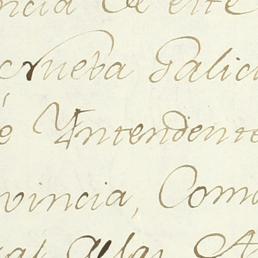 ncia de este
nueba Galici
é Yntendente
vincia, Com